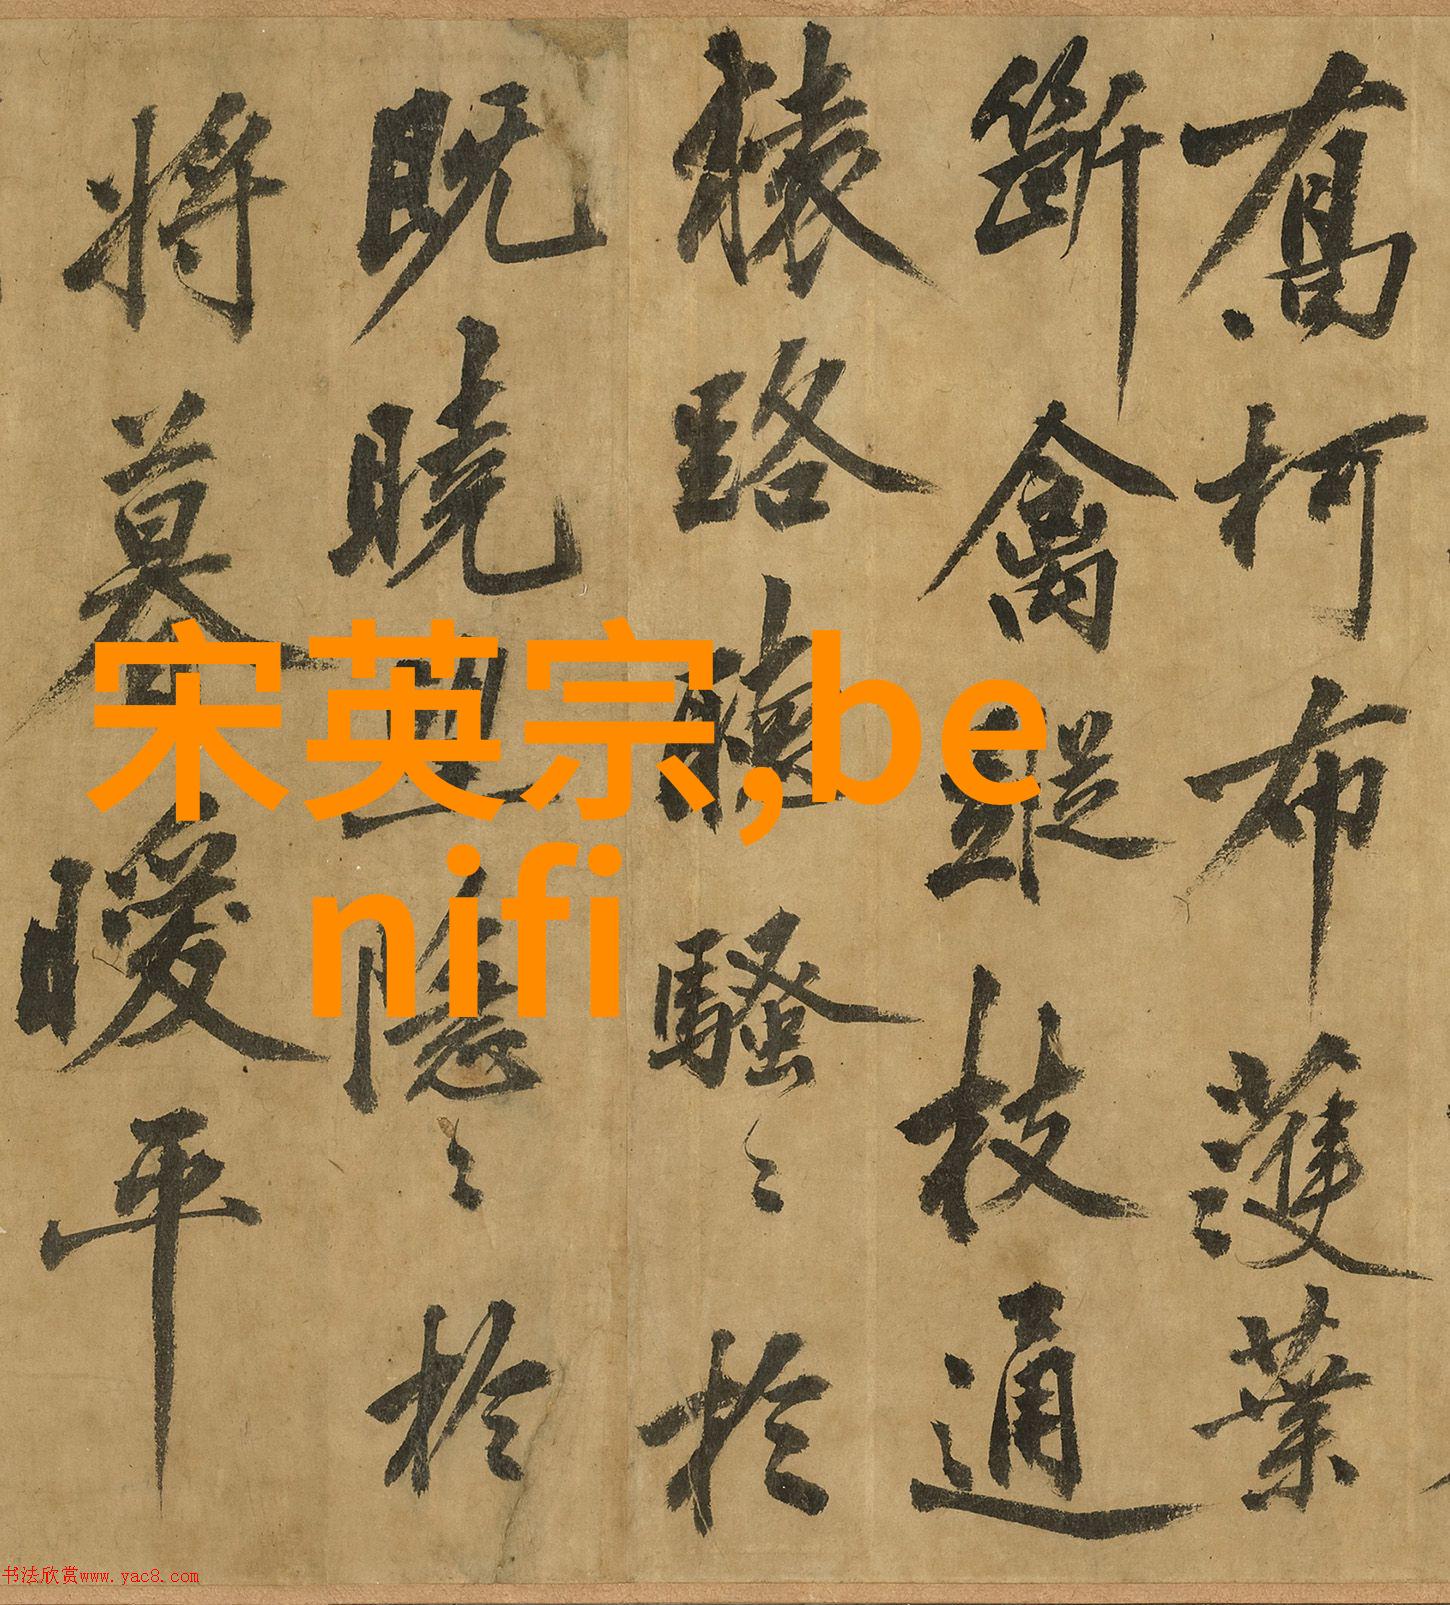 喬柯布濩葉
斷禽蹤枝通
猿路聽騷〻於
既曉隱〻於
將暮暖平
宋英宗,be
nifi
书法欣赏www.yac8.com